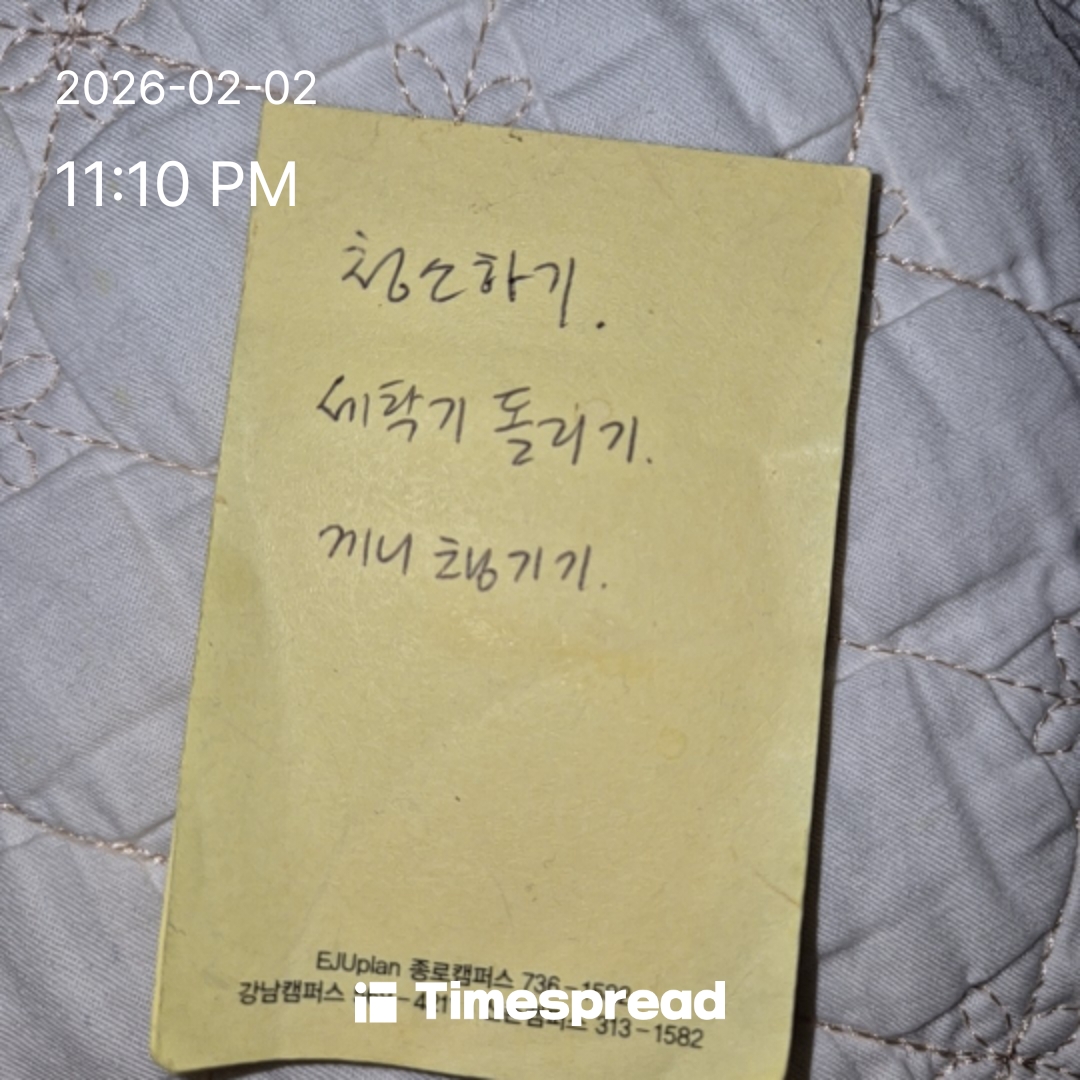 2026-02-02
11:10 PM
청소하기.
세탁기 돌리기.
끼니 챙기기.
EJUplan 종로캠퍼스 736-1582
강남캠퍼스 313-1582
Timespread